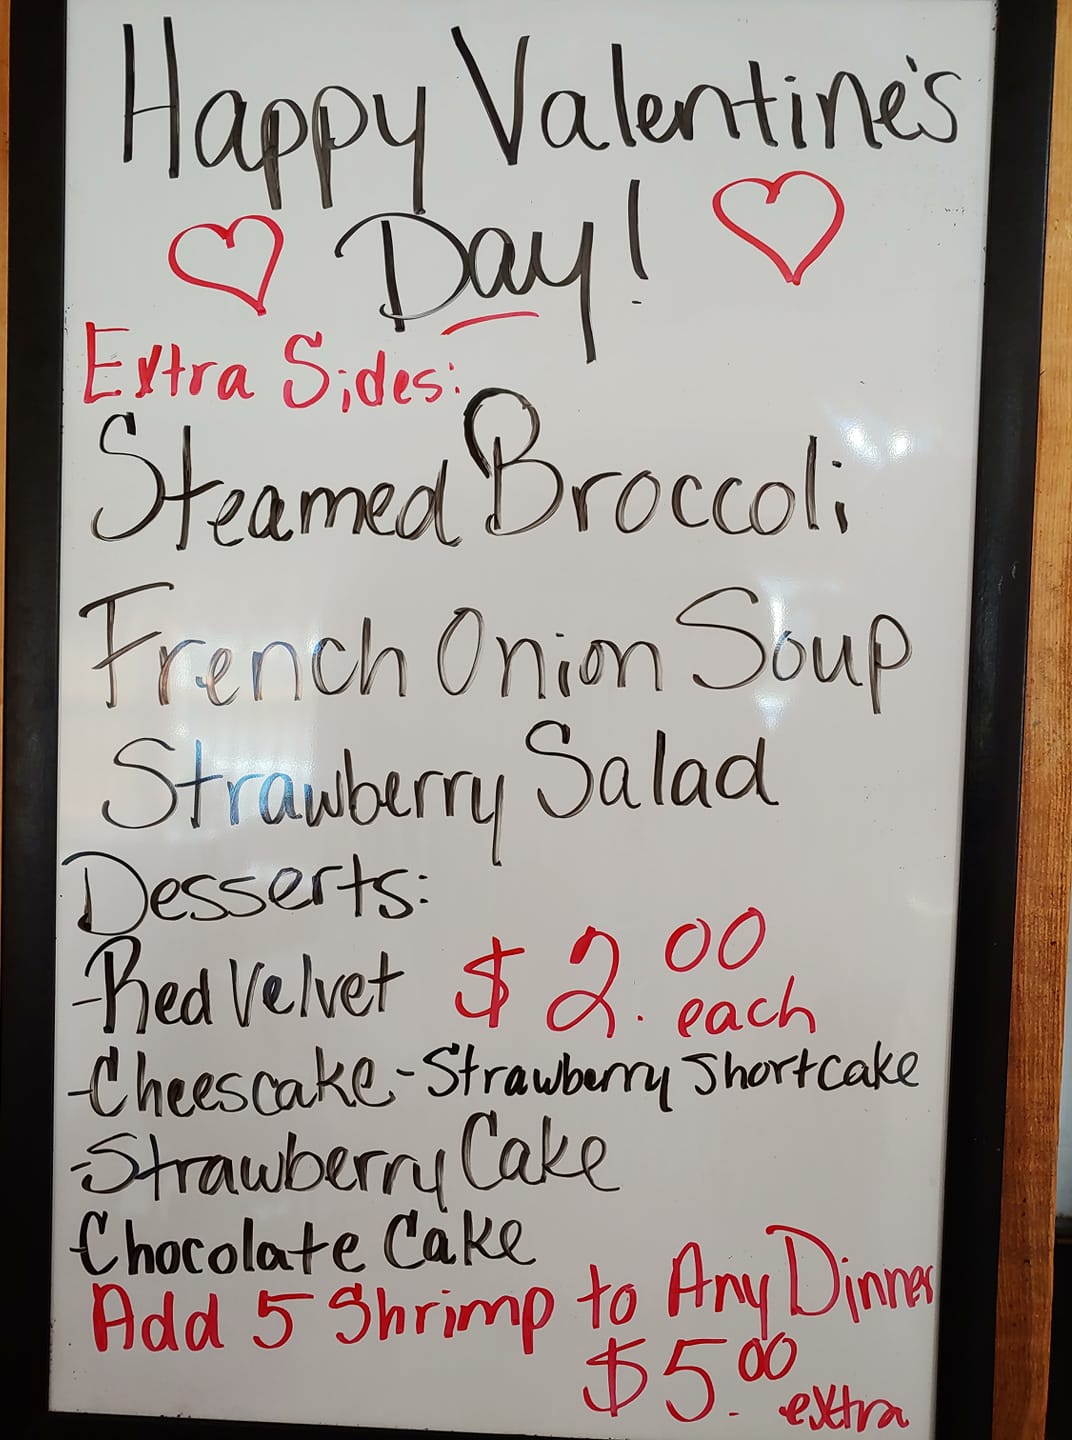 Happy Valentine's
Day!
Extra Sides:
Steamed Broccoli
French Onion Soup
Strawberry Salad
Desserts:
-Red Velvet $2.00 each
-Cheescake-Strawberry Shortcake
-Strawberry Cake
-Chocolate Cake
Add 5 Shrimp to Any Dinner
$5.00 extra